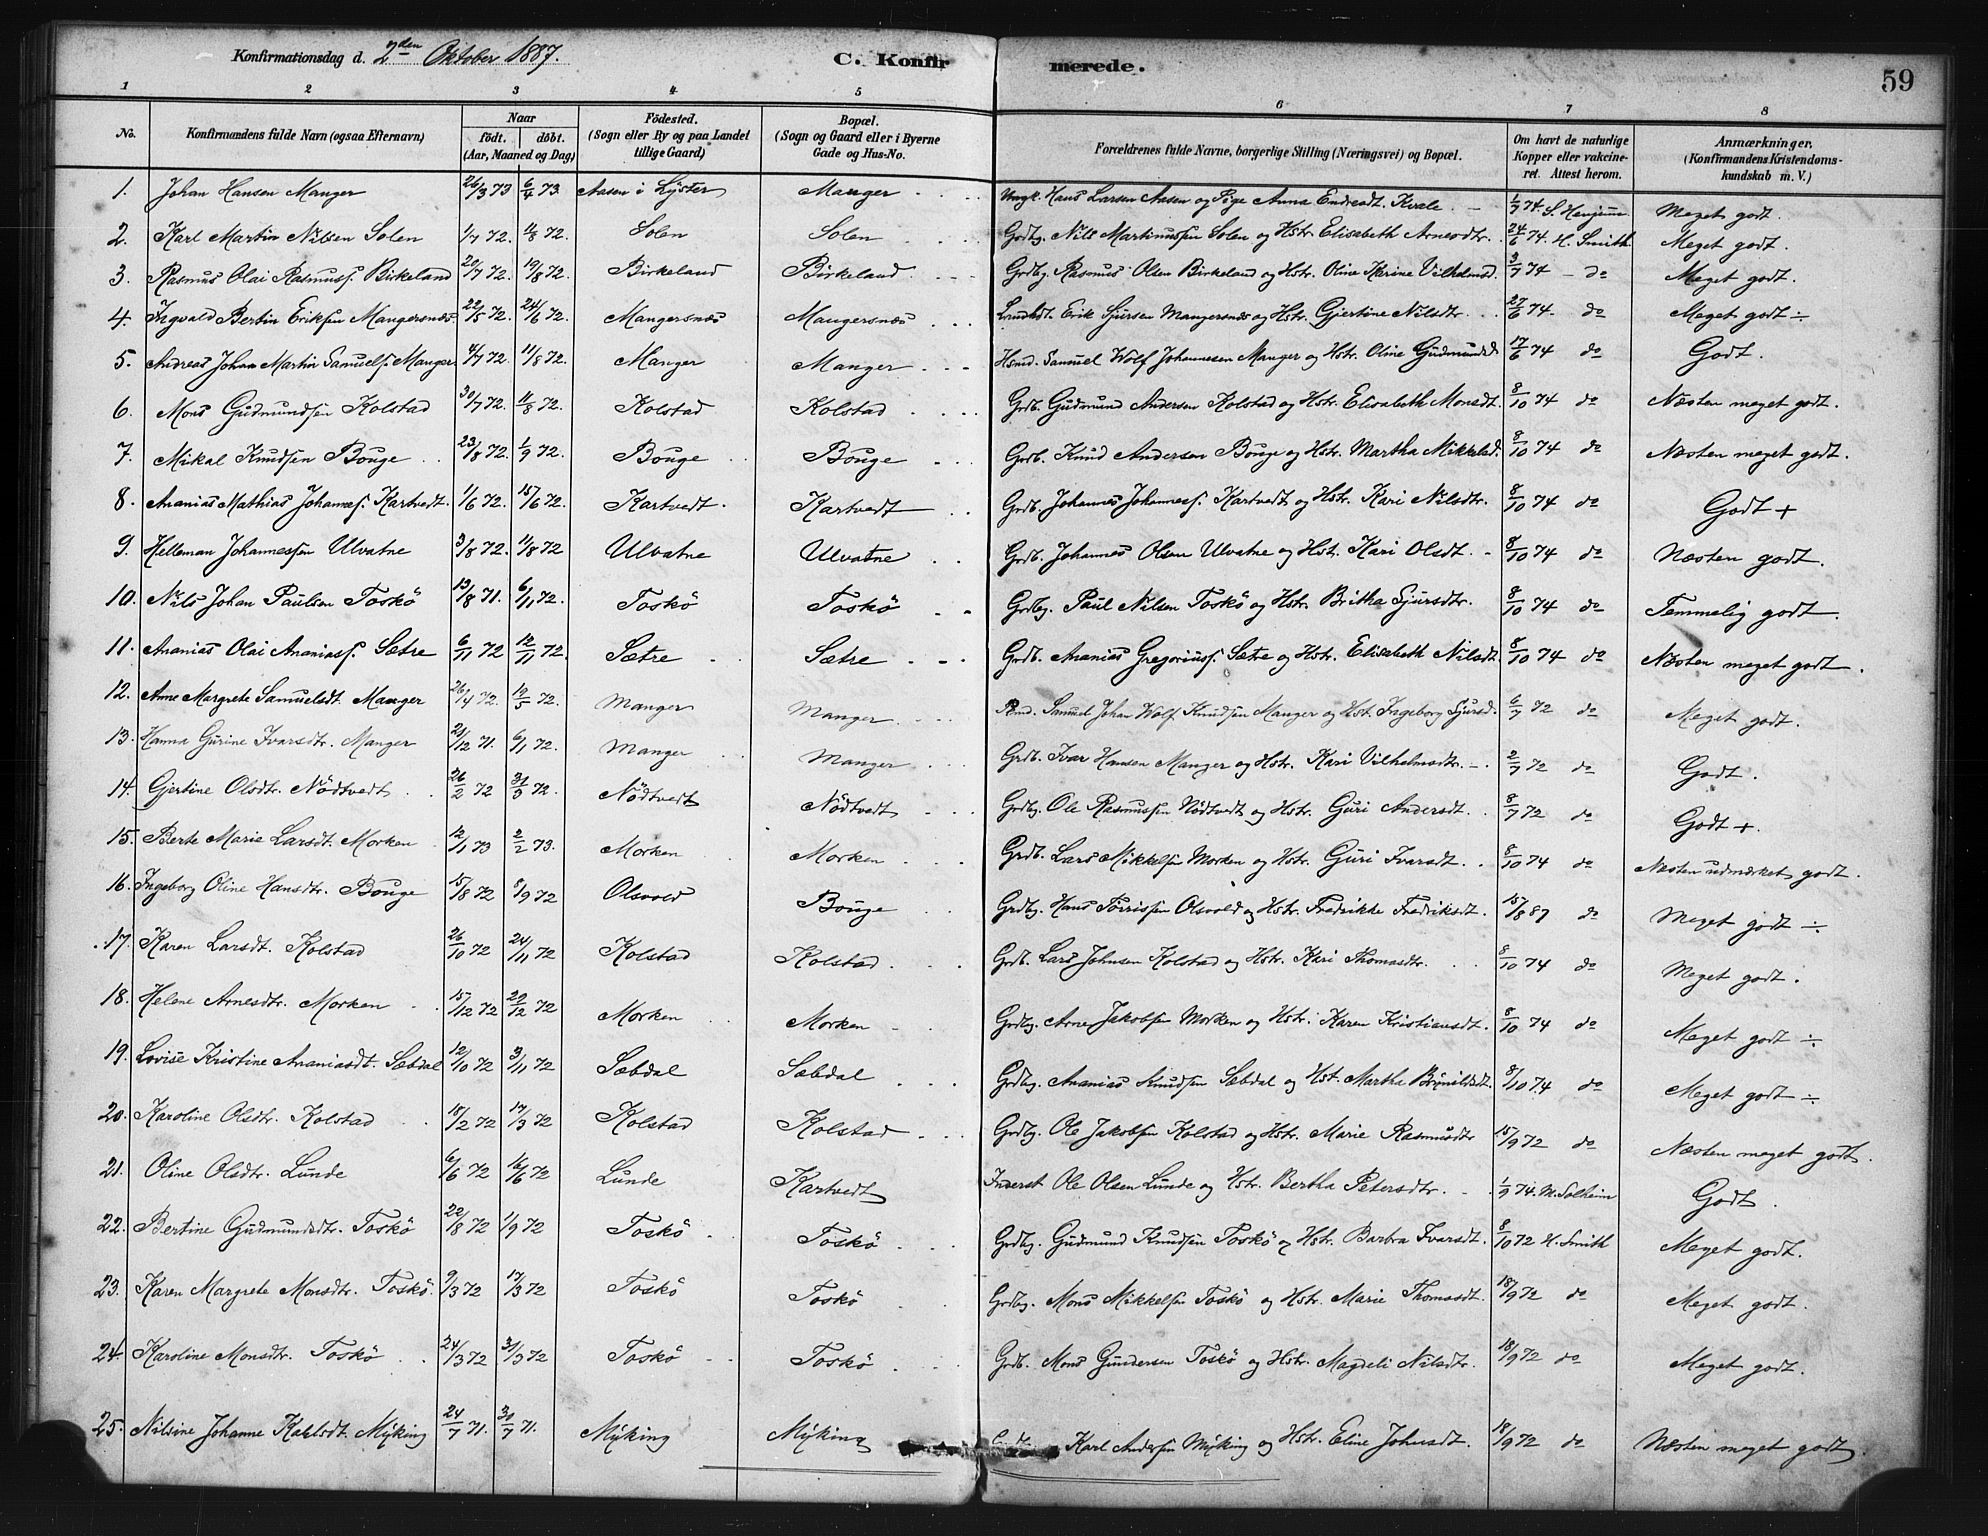 Konfirmationsdag d. 2den Oktober 1887. C. Konfirmerede. 59
1 2 3 4 5 6 7 8
No. Konfirmandens fulde Navn (ogsaa Efternavn) Naar født. døbt. (Aar, Maaned og Dag) Födested. (Sogn eller By og paa Landet tillige Gaard) Bopæl. (Sogn og Gaard eller i Byerne Gade og Hus-No. Forældrenes fulde Navne, borgerlige Stilling (Næringsvei) og Bopæl. Om havt de naturlige Kopper eller vakcineret. Attest herom. Anmærkninger. (Konfirmandens Kristendomskundskab m. V.)
1. Johan Hansen Manger 26/3 73 6/4 73. Aasen i Lyster Manger Ungk. Hans Larsen Aasen og Pige Anna Endresdt. Kvale 1/7 74. S. Henjum Meget godt.
2. Karl Martin Nilsen Solen 1/7 72. 11/8 72. Solen Solen Grdbg. Nils Martinussen Solen og Hstr. Elisabeth Arnesdtr. 24/6 74. H. Smith Meget godt.
3. Rasmus Olai Rasmuss. Birkeland 20/7 72. 19/8 72. Birkeland Birkeland Grdbg. Rasmus Olsen Birkeland og Hstr. Oline Karine Vilhelmsd. 3/7 74 - do Meget godt.
4. Ingvald Bertin Eriksen Mangersnæs. 22/5 72. 24/6 72. Mangersnæs Mangersnæs Erik Sjursen Mangersnæs og Hstr. Gjertine Nilsdtr. 27/6 74. do Meget godt ÷
5. Andreas Johan Martin Samuels. Manger 4/7 72. 11/8 72. Manger Manger Hsmd. Samuel Wolf Johannesen Manger og Hstr. Oline Gudmundsd. 17/6 74 do Godt.
6. Mons Gudmundsen Kolstad 30/7 72. 11/8 72. Kolstad Kolstad Grdb. Gudmund Andersen Kolstad og Hstr. Elisabeth Monsdt. 8/10 74 do Næsten meget godt.
7. Mikal Knudsen Bouge 23/8 72. 1/9 72. Bouge Bouge Grdb. Knud Andersen Bouge og Hstr. Martha Mikkelsd. 8/10 74 do Næsten meget godt.
8. Ananias Mathias Johannes. Kartvedt 1/6 72. 15/6 72. Kartvedt. Kartvedt Grdb. Johannes Johanness. Kartvedt og Hstr. Kari Nilsdtr. 8/10 74 do Godt +
9. Helleman Johannessen Ulvatne 3/8 72. 11/8 72 Ulvatne Ulvatne Grdb. Johannes Olsen Ulvatne og Hstr. Kari Olsdt. 8/10 74 do Næsten godt.
10. Nils Johan Paulsen Toskö 13/8 71. 6/11 72. Toskö Toskö Grdbg. Paul Nilsen Toskö og Hstr. Britha Sjursdtr. 8/10 74 do Temmelig godt.
11. Ananias Olai Ananiass. Sætre 6/11 72 12/11 72. Sætre Sætre Grdb. Ananias Gregoriuss. Sætre og Hstr. Elisabeth Nilsdt. 8/10 74 do Næsten meget godt.
12. Anne Margrete Samuelsdt. Manger 26/4 72. 19/5 72. Manger Manger Samuel Johan Wolf Knudsen Manger og Hst. Ingeborg Sjursd. 6/7 72 do Meget godt.
13. Hanna Gurine Ivarsdtr. Manger 29/12 71. 6/1 72. Manger Manger Grdb. Ivar Hansen Manger og Hstr. Kari Vilhelmsdtr. 2/7 72 do Godt.
14. Gjertine Olsdtr. Nödtvedt 26/2 72 31/3 72. Nödtvedt Nödtvedt Grdbg. Ole Rasmussen Nödtvedt og Hstr. Guri Andersdt. 8/7 72 do Godt +.
15. Berte Marie Larsdt. Morken 12/1 73 2/2 73. Morken Morken Grdb. Lars Mikkelsen Morken og Hstr. Guri Ivarsdt. 8/10 74 do Næsten udmærket godt.
16. Ingeborg Oline Hansdtr. Bouge 15/8 72 8/9 72 Olsvold Bouge Grdbg. Hans Torrissen Olsvold og Hstr. Fredrikke Fredriksdt. 15/8 87 do Meget godt ÷
17. Karen Larsdt. Kolstad 26/10 72 24/11 72 Kolstad Kolstad Grdb. Lars Johnsen Kolstad og Hstr. Kari Thomasdtr. 8/10 74 do Meget godt.
18. Helene Arnesdtr. Morken 15/12 72 29/12 72 Morken Morken Grdbg. Arne Jakobsen Morken og Hstr. Karen Kristiansdt. 8/10 74 do Meget godt ÷
19. Lovise Kristine Ananiasdt. Sæbdal 12/10 72 3/11 72 Sæbdal Sæbdal Grdbg. Ananias Knudsen Sæbdal og Hst. Martha Brynildsdt. 8/10 74 do Meget godt ÷
20. Karoline Olsdtr. Kolstad 18/2 72 17/3 72 Kolstad Kolstad Grdbg. Ole Jakobsen Kolstad og Hstr. Marie Rasmusdtr 15/9 72 do Næsten meget godt.
21. Oline Olsdtr. Lunde 6/6 72 16/6 72 Lunde Kartvedt Inderst Ole Olsen Lunde og Hstr. Bertha Petersdtr. 1/9 74. M. Solheim Godt.
22. Bertine Gudmundsdtr. Toskö 22/8 72 1/9 72 Toskö Toskö Grdbg. Gudmund Knudsen Toskö og Hstr. Barbra Ivarsdt. 8/10 72 H. Smith Meget godt.
23. Karen Margrete Monsdtr. Toskö. 9/3 72 17/3 72 Toskö Toskö Grdbg. Mons Mikkelsen Toskö og Hstr. Marie Thomasdt. 18/9 72 do Meget godt.
24. Karoline Monsdtr. Toskö 24/3 72 31/3 72 Toskö Toskö Grdb. Mons Gundersen Toskö og Hstr. Magdeli Nilsdtr. 18/9 72 do Meget godt.
25. Nilsine Johanne Karlsdt. Myking 24/7 71. 30/7 71. Myking Myking Karl Andersen Myking og Hstr. Eline Johnsdt. 18/9 72 do Næsten meget godt.